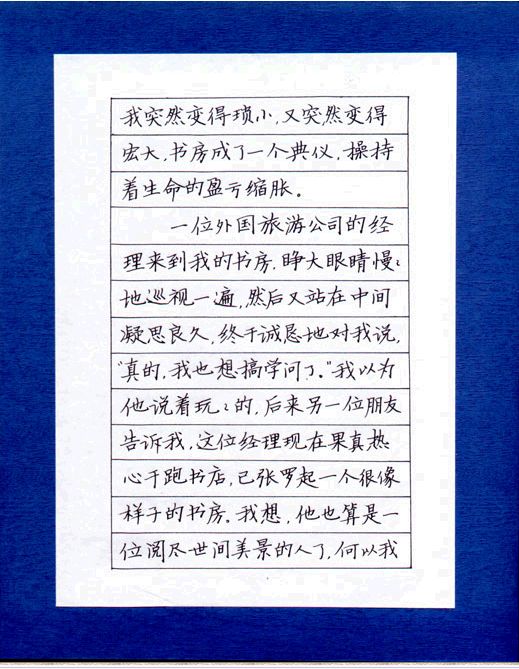 我突然变得琐小,又突然变得
宏大,书房成了一个典仪,操持
着生命的盈亏缩胀。
一位外国旅游公司的经
理来到我的书房,睁大眼睛慢々
地巡视一遍,然后又站在中间
凝思良久,终于诚恳地对我说,
“真的,我也想搞学问了。”我以为
他说着玩々的,后来另一位朋友
告诉我,这位经理现在果真热
心于跑书店,已张罗起一个很像
样子的书房。我想,他也算是一
位阅尽世间美景的人了,何以我